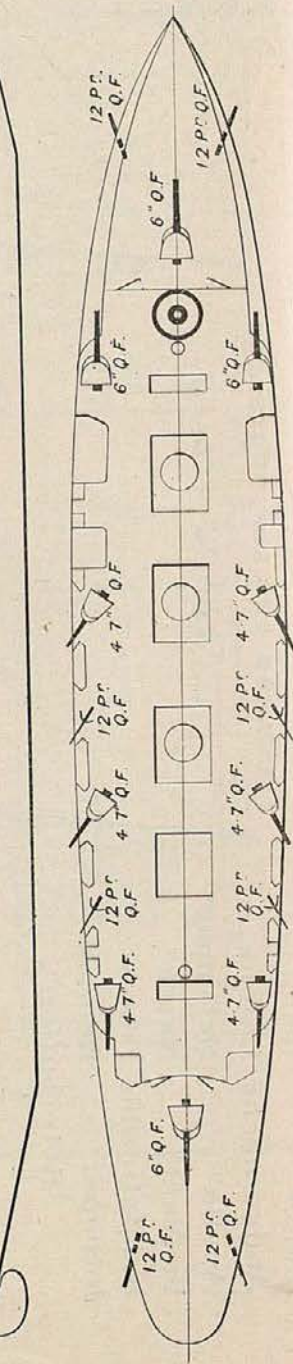 12 Pr.
Q.F.
12 Pr. Q.F.
6" Q.F.
6" Q.F.
6" Q.F.
4·7" Q.F.
4·7" Q.F.
12 Pr.
Q.F.
12 Pr.
Q.F.
4·7" Q.F.
4·7" Q.F.
12 Pr.
Q.F.
12 Pr.
Q.F.
4·7" Q.F.
4·7" Q.F.
6" Q.F.
12 Pr.
Q.F.
12 Pr.
Q.F.